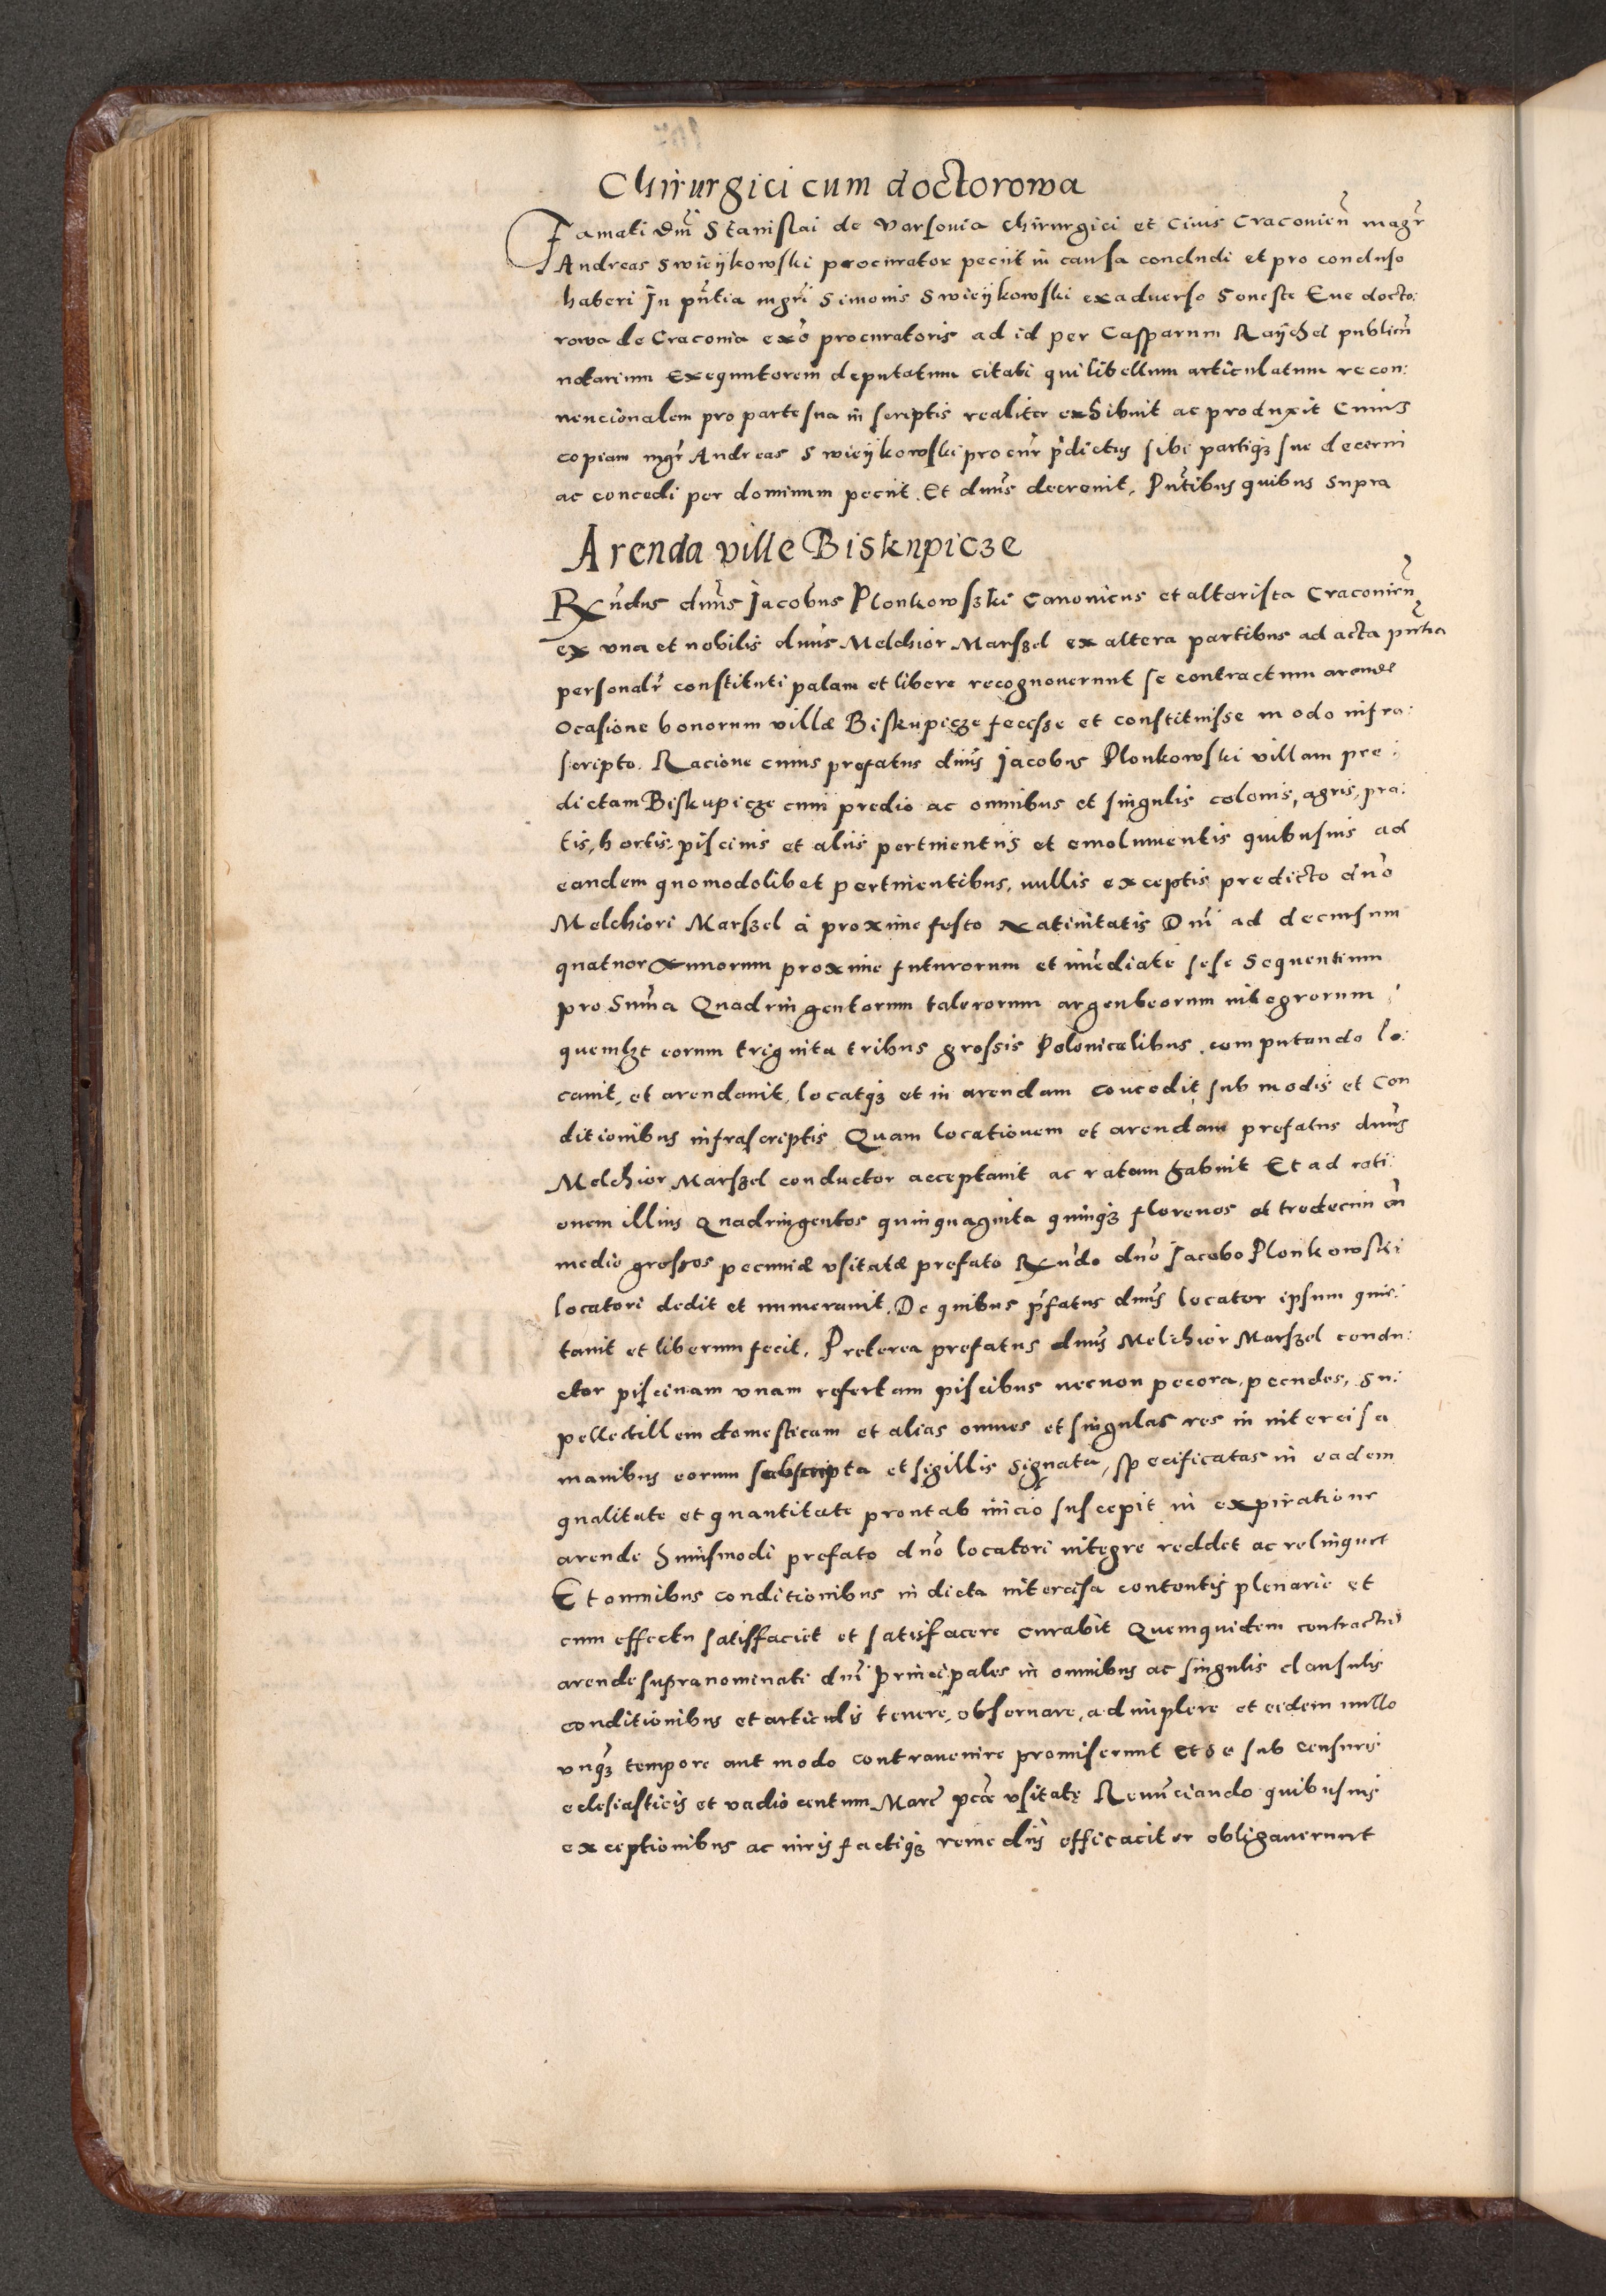 Chirurgici cum doctorowa
Famati dnī Stanislai de Varsovia chirurgici et civis Cracovień magr̄
Andreas Swieijkowski procurator peciit in causa concludi et pro concluso
haberi In pn̄tia mgrī Simonis Swieijkowski ex adverso honeste Eve docto:
rowa de Craconia exō procuratoris ad id per Casparum Raijchel publicū
notarium Exequutorem deputatum citati qui libellum articulatum recon:
vencionalem pro parte sua in scriptis realiter exhibuit ac produxit Cuius
copiam mgr̄ Andreas Swieijkowski procūr p̄dictus sibi partiqꝫ sue decerni
ac concedi per dominum peciit. Et dnūs decrevit, Pn̄tibus quibus supra
Arenda ville Biskupicze
Rn̄dus dnūs Jacobus Plonkowszki Canonicus et altarista Cracovień
ex una et nobilis dnūs Melchior Marszel ex altera partibus ad acta pn̄tia
personalr̄ constituti palam et libere recognoverunt se contractum arende
Ocasione bonorum villæ Biskupicze fecisse et constituisse modo infra:
scripto. Racione cuius prefatus dnūs Jacobus Plonkowski villam pre:
dictam Biskupicze cum predio ac omnibus et singulis colonis, agris, pra:
tis, hortis, piscinis et aliis pertinentiis et emolumentis quibusvis ad
eandem quomodolibet pertinentibus, nullis exceptis predicto dnō
Melchiori Marszel à proxime festo Nativitatis Dnī ad decursum
quatuor Annorum proxime futurorum et im̄ediate sese Sequentium
pro Sum̄a Quadringentorum talerorum argenteorum integrorum
quemlꝫt eorum triginta tribus grossis Polonicalibus computando lo:
cavit, et arendavit, locatqꝫ et in arendam concedit sub modis et Con
ditionibus infrascriptis Quam locationem et arendam prefatus dnūs
Melchior Marszel conductor acceptavit ac ratam habuit Et ad rati:
onem illius Quadringentos quinquaginta quinqꝫ florenos et tredecim cū
medio grossos pecuniæ usitatæ prefato Rn̄do dnō Jacobo Plonkowski
locatori dedit et numeravit. De quibus p̄fatus dnūs locator ipsum quie:
tavit et liberum fecit. Preterea prefatus dnūs Melchior Marszel condu:
ctor piscinam unam refertam piscibus necnon pecora, pecudes, su:
pellectillem domesticam et alias omnes et singulas res in intercisa
manibus eorum subscripta et sigillis signata, specificatas in eadem
qualitate et quantitate prout ab inicio suscepit in expiratione
arende huiusmodi prefato dnō locatori integre reddet ac relinquet
Et omnibus conditionibus in dicta intercisa contentis plenarie et
cum effectu satisfaciet et satisfacere curabit Quemquidem contractū
arende supranominati dnī principales in omnibus ac singulis clausulis
conditionibus et articulis tenere, observare, adimplere et eidem nullo
unqꝫ tempore aut modo contravenire promiserunt et se sub Censuris
eclesiasticis et vadio centum Marc̄ pcæ usitatę Renun̄ciando quibusvis
exceptionibus ac iuris factiqꝫ remediis efficaciter obligaverunt